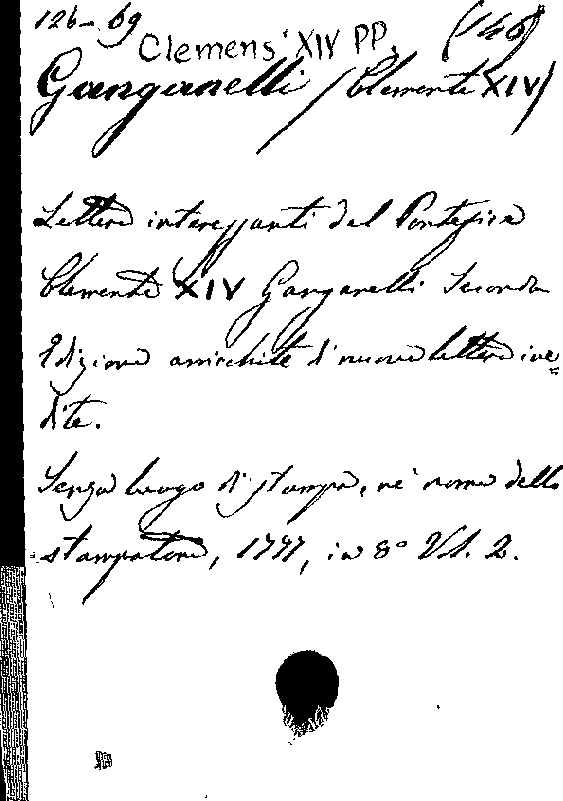 126-69
Clemens XIV PP.
Ganganelli (Clemente XIV)
Lettere interessanti del Pontefice
Clemente XIV Ganganelli Seconda
Edizione arricchite di nuove lettere ine=
dite.
Senza luogo di stampa, nè nome dello
stampatore, 1777, in 8° Vol. 2.